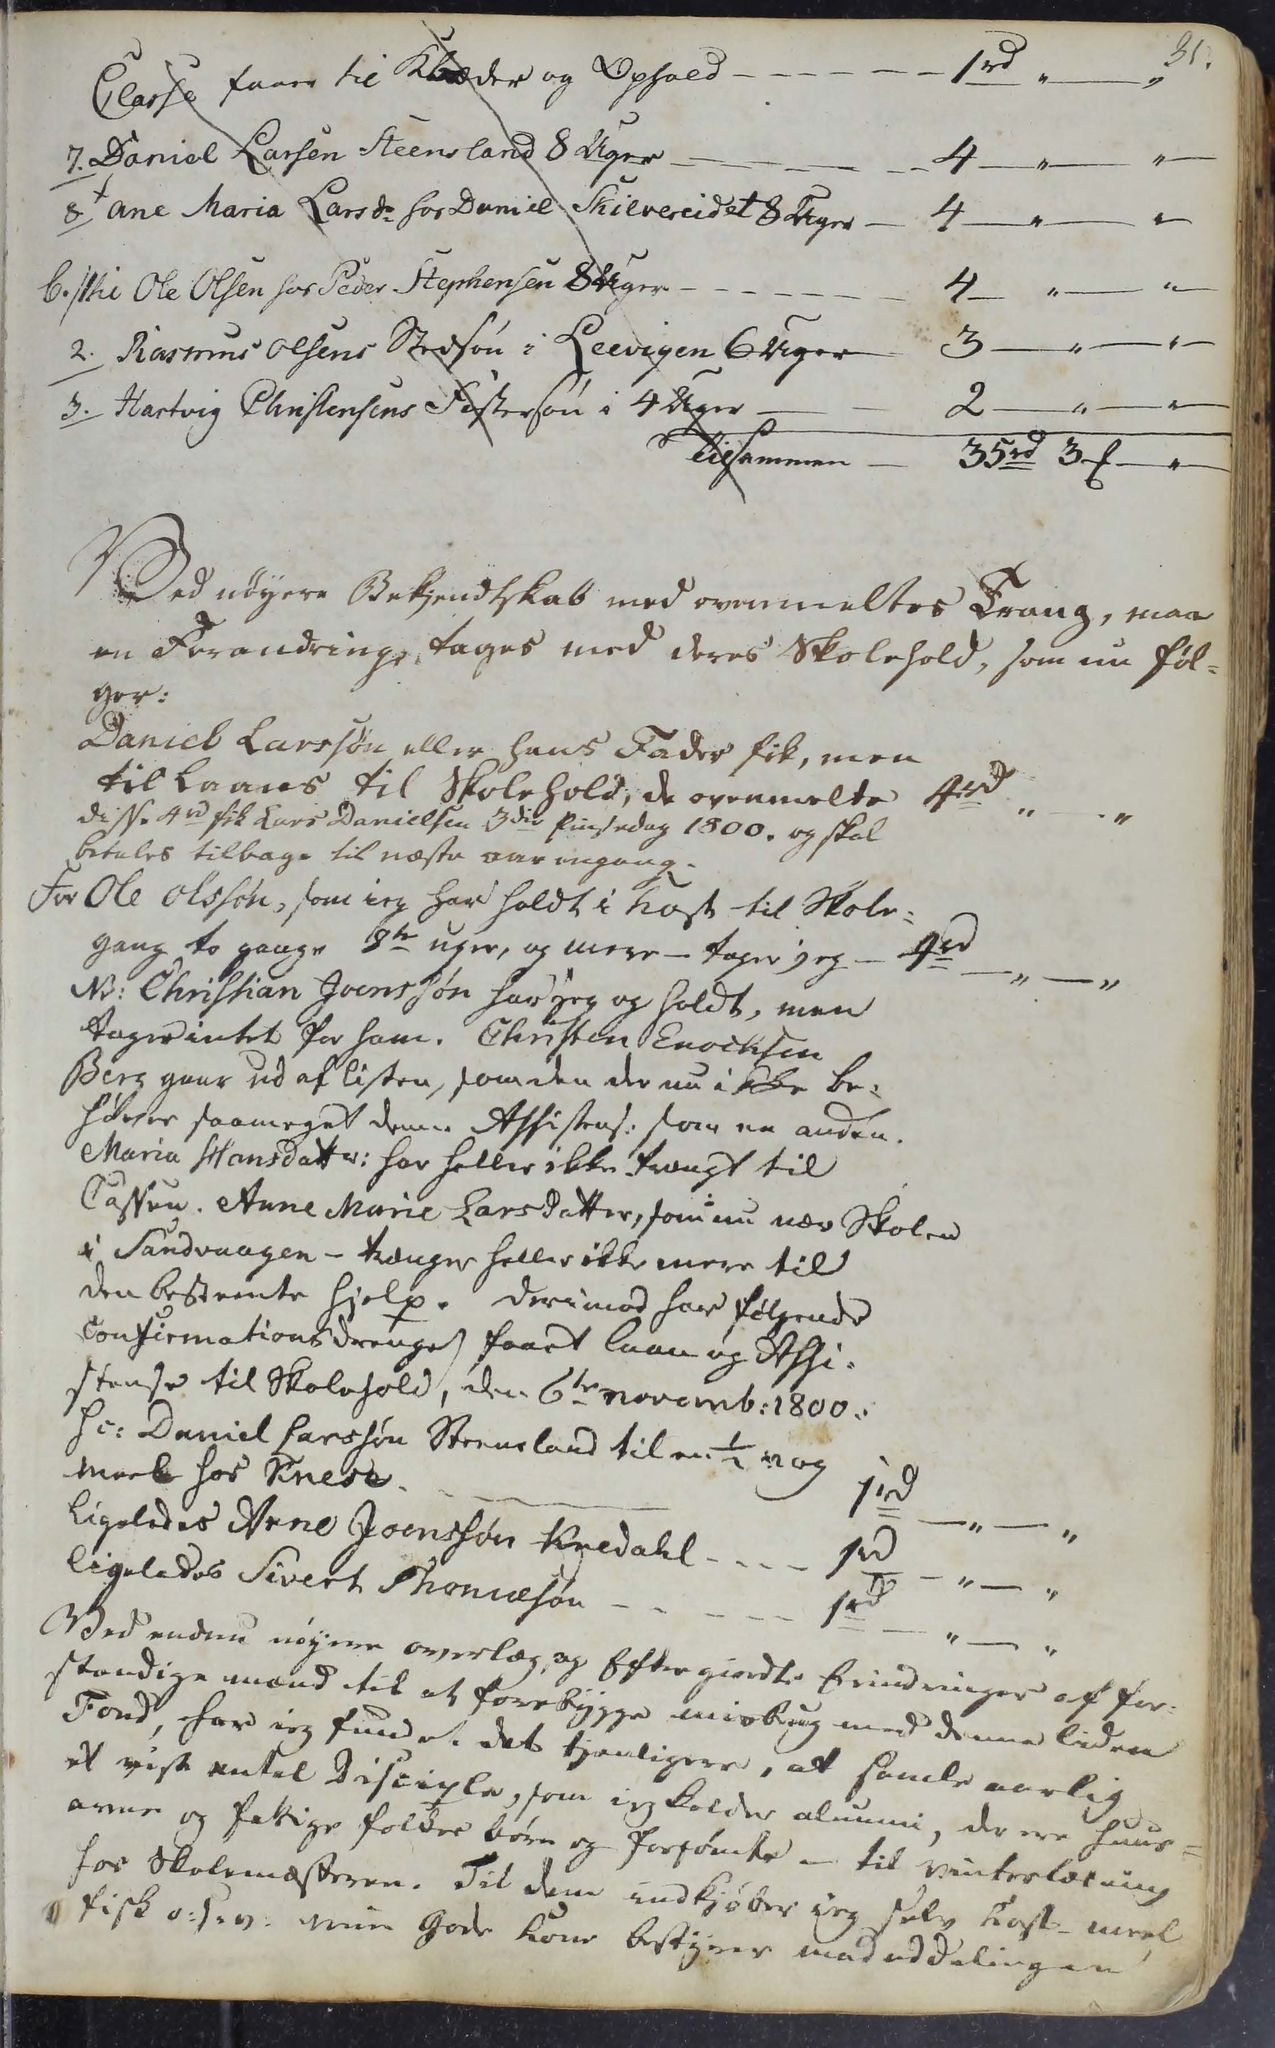 31.
Classe faaer til Klæder og Ophold - - - - - - 1rd " — "
7. Daniel Larsen Steensland 8 Uger — — — - - 4 — " — " —
8 Ane Maria Larsdr hos Daniel Skilvereidet 8 Uger — 4 — " — "
b./ Ole Olsen hos Peder Stephensen 8 Uger - - - - - - 4 — " — " —
2. Rasmus Olsens Stedsøn i Leevigen 6 Uger — 3 — " — " —
3. Hartvig Christensens Søstersøn i 4 Uger — — 2 — " — " —
Tilsammen — 35rd 3 f — " —
Ved nöyere Bekjendtskab med ovenmeltes Trang, maa
en Forandring tages med deres Skolehold, som nu föl=
ger:
Daniel Larssøn eller hans Fader fik, men
til Laans til Skolehold, de ovenmelte 4rd " — "
disse 4rd fik Lars Danielsen 3die Pinsedag 1800. og skal
betales tilbage til næste aar engang.
For Ole Olssøn, som ieg har holdt i Kost til Skole=
gang to gange 8te uger, og mere — tager jeg — 4rd — " — "
NB: Christian Joenssøn har jeg og holdt, men
tager intet for ham. Christen Enochsen
Berg gaar ud af listen, som den der nu ikke be=
höver saameget denne Assistens: som en anden.
Maria Hansdatter: har heller ikke trængt til
Cassen. Anne Marie Larsdatter, som nu nær Skolen
i Sandvaagen — trænger heller ikke mere til
den bestemte hjelp. Derimod har følgende
Confirmationsdrenge faaet laan og Assi=
stense til Skolehold, den 6te novemb: 1800.
sc: Daniel Larssøn Steensland til en 1/2 vog
meel hos Knese. — 1rd — " — "
Ligeledes Arne Joenssøn Kredahl - - - - 1rd — " — "
ligeledes Sivert Thomæsøn - - - - - 1rd — " — "
Ved endnu nöyere overlæg, og Efter giordte Erindringer af for=
standige mænd til at forebygge misbrug med denne liden
Fond, har ieg fundet det tjenligere, at samle aarlig
et vist antal Disciple, som ieg kalder alumni, der ere huus=
arme og fattige folkes børn og forsömte — til vinterlæsning
hos Skolemesteren. Til dem indkjöber ieg selv Kost — meel
fisk o: s: v: min Gode Kone bestyrer maduddelingen